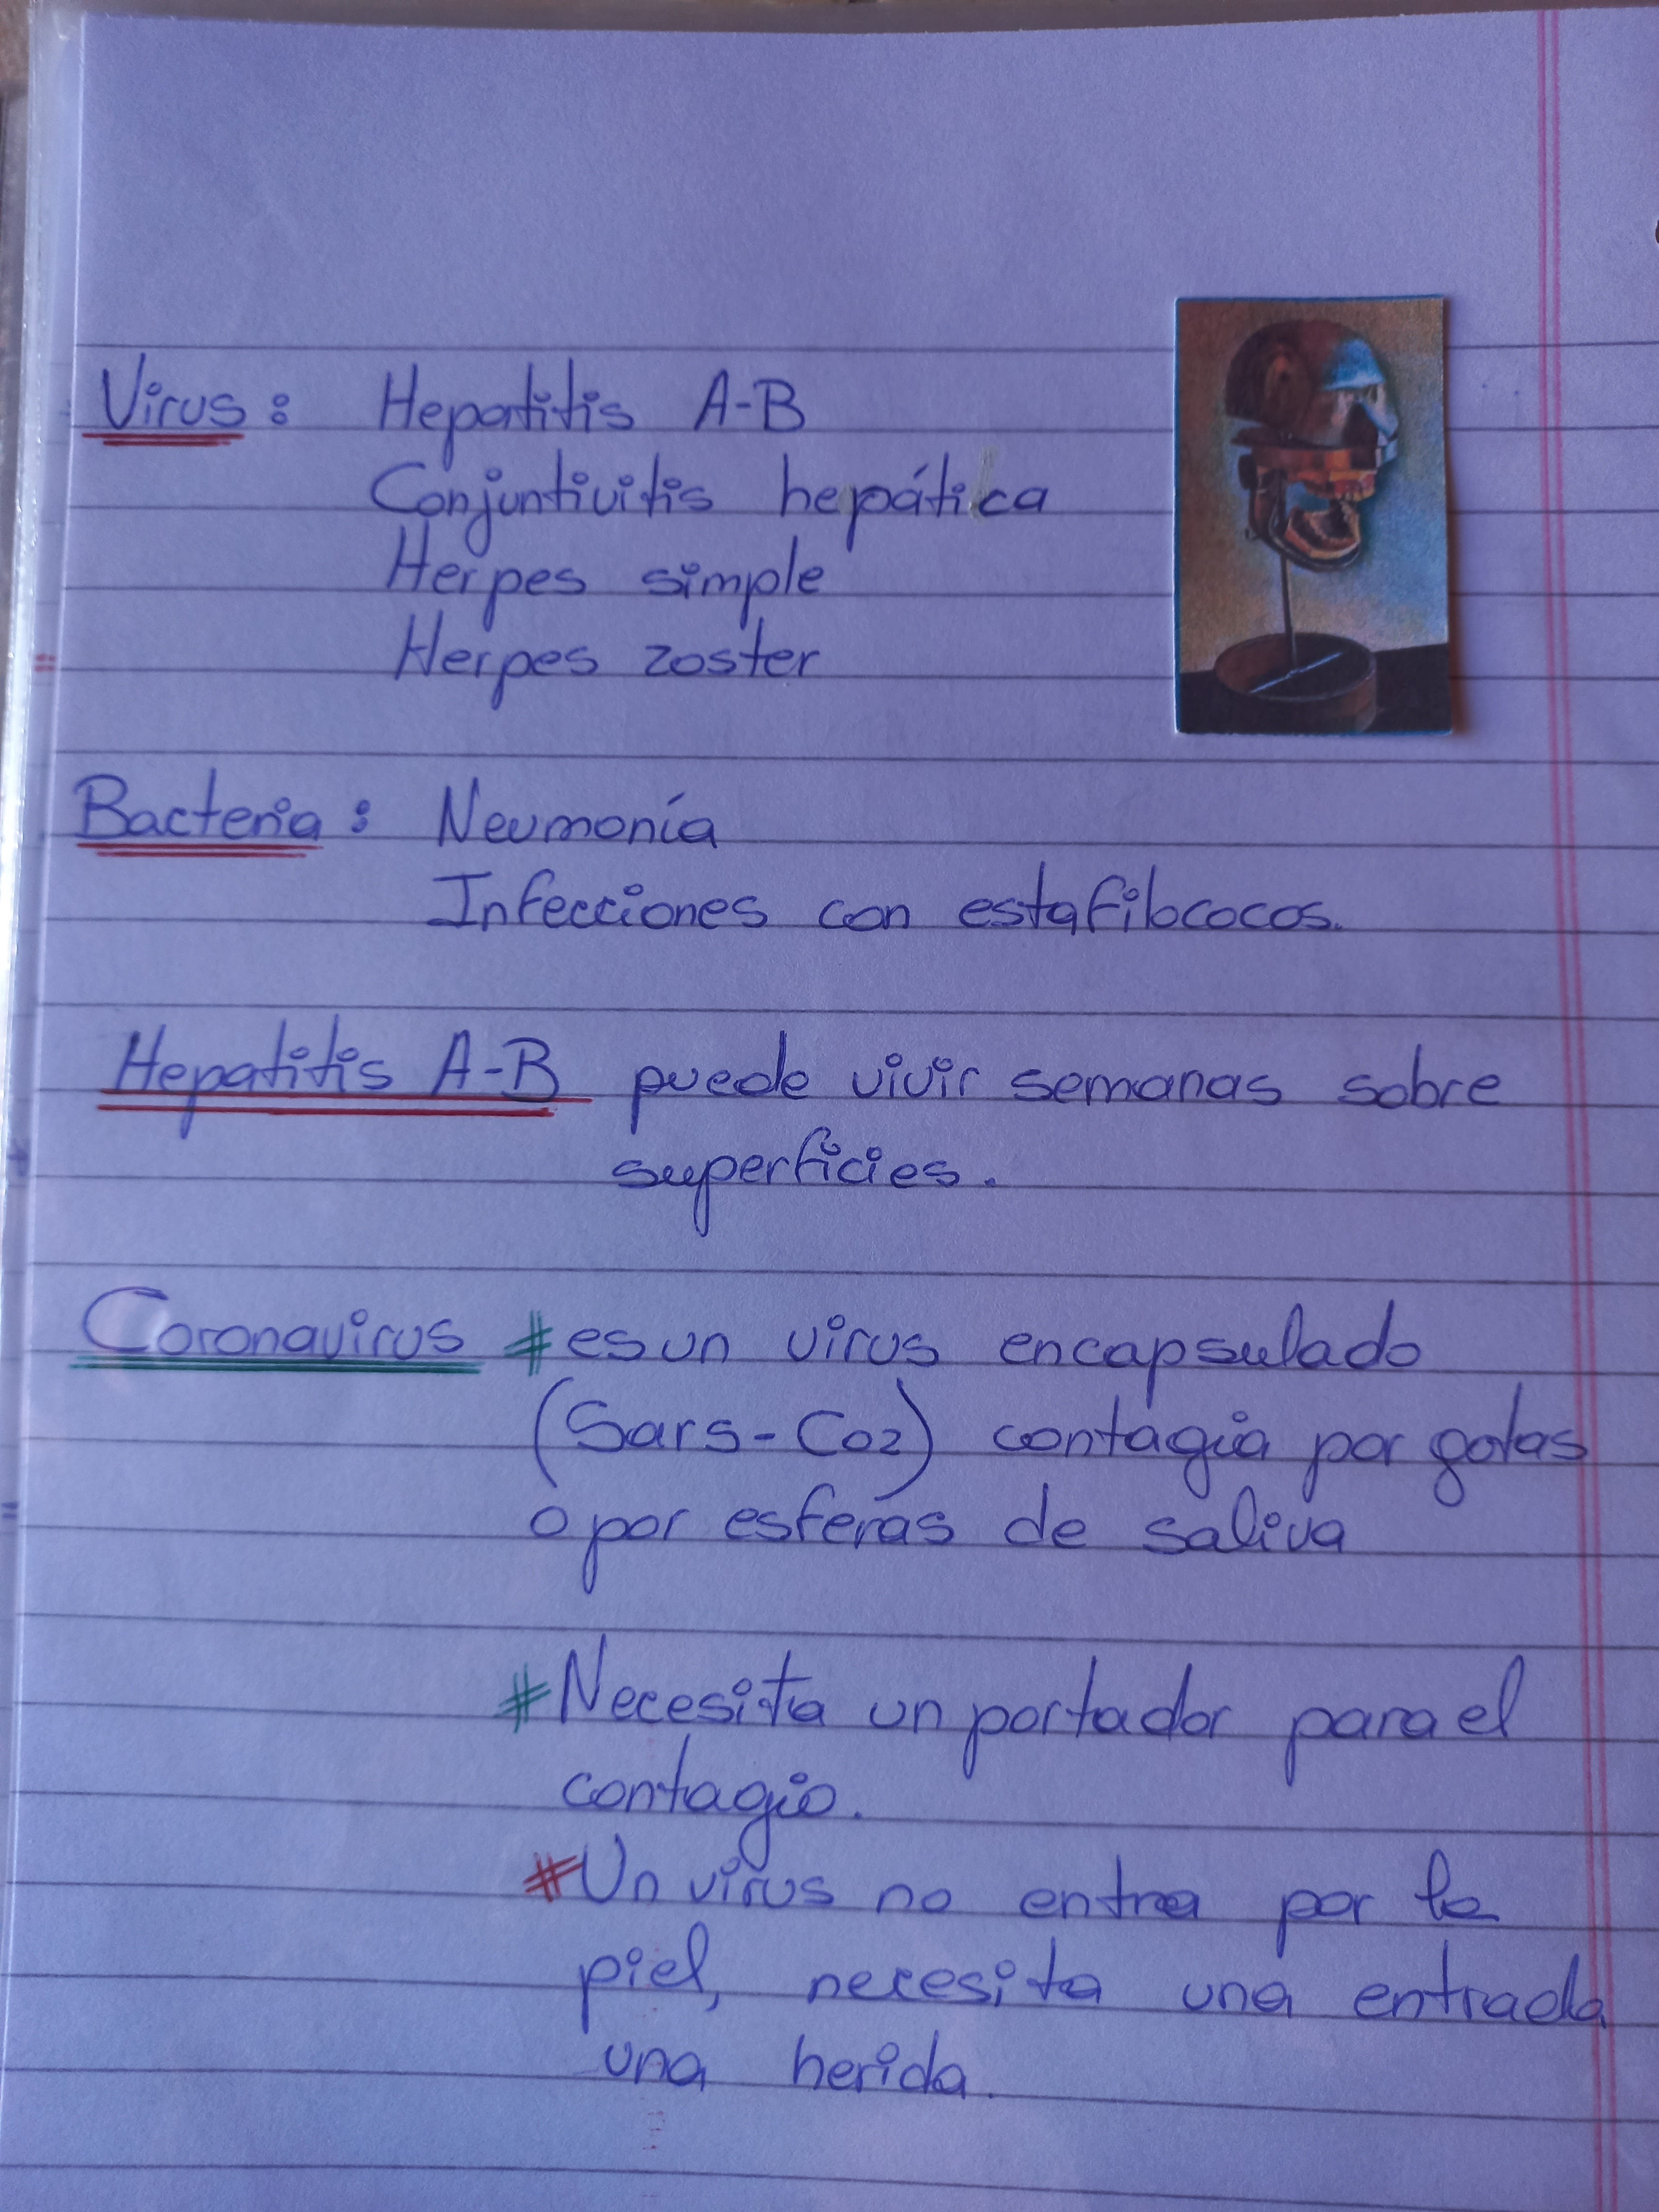 Virus: Hepatitis A-B
Conjuntivitis hepática
Herpes simple
Herpes zoster
Bacteria: Neumonía
Infecciones con estafilococos.
Hepatitis A-B puede vivir semanas sobre
superficies.
Coronavirus # es un virus encapsulado
(Sars-Co2) contagia por gotas
o por esferas de saliva
# Necesita un portador para el
contagio.
# Un virus no entra por la
piel, necesita una entrada
una herida.